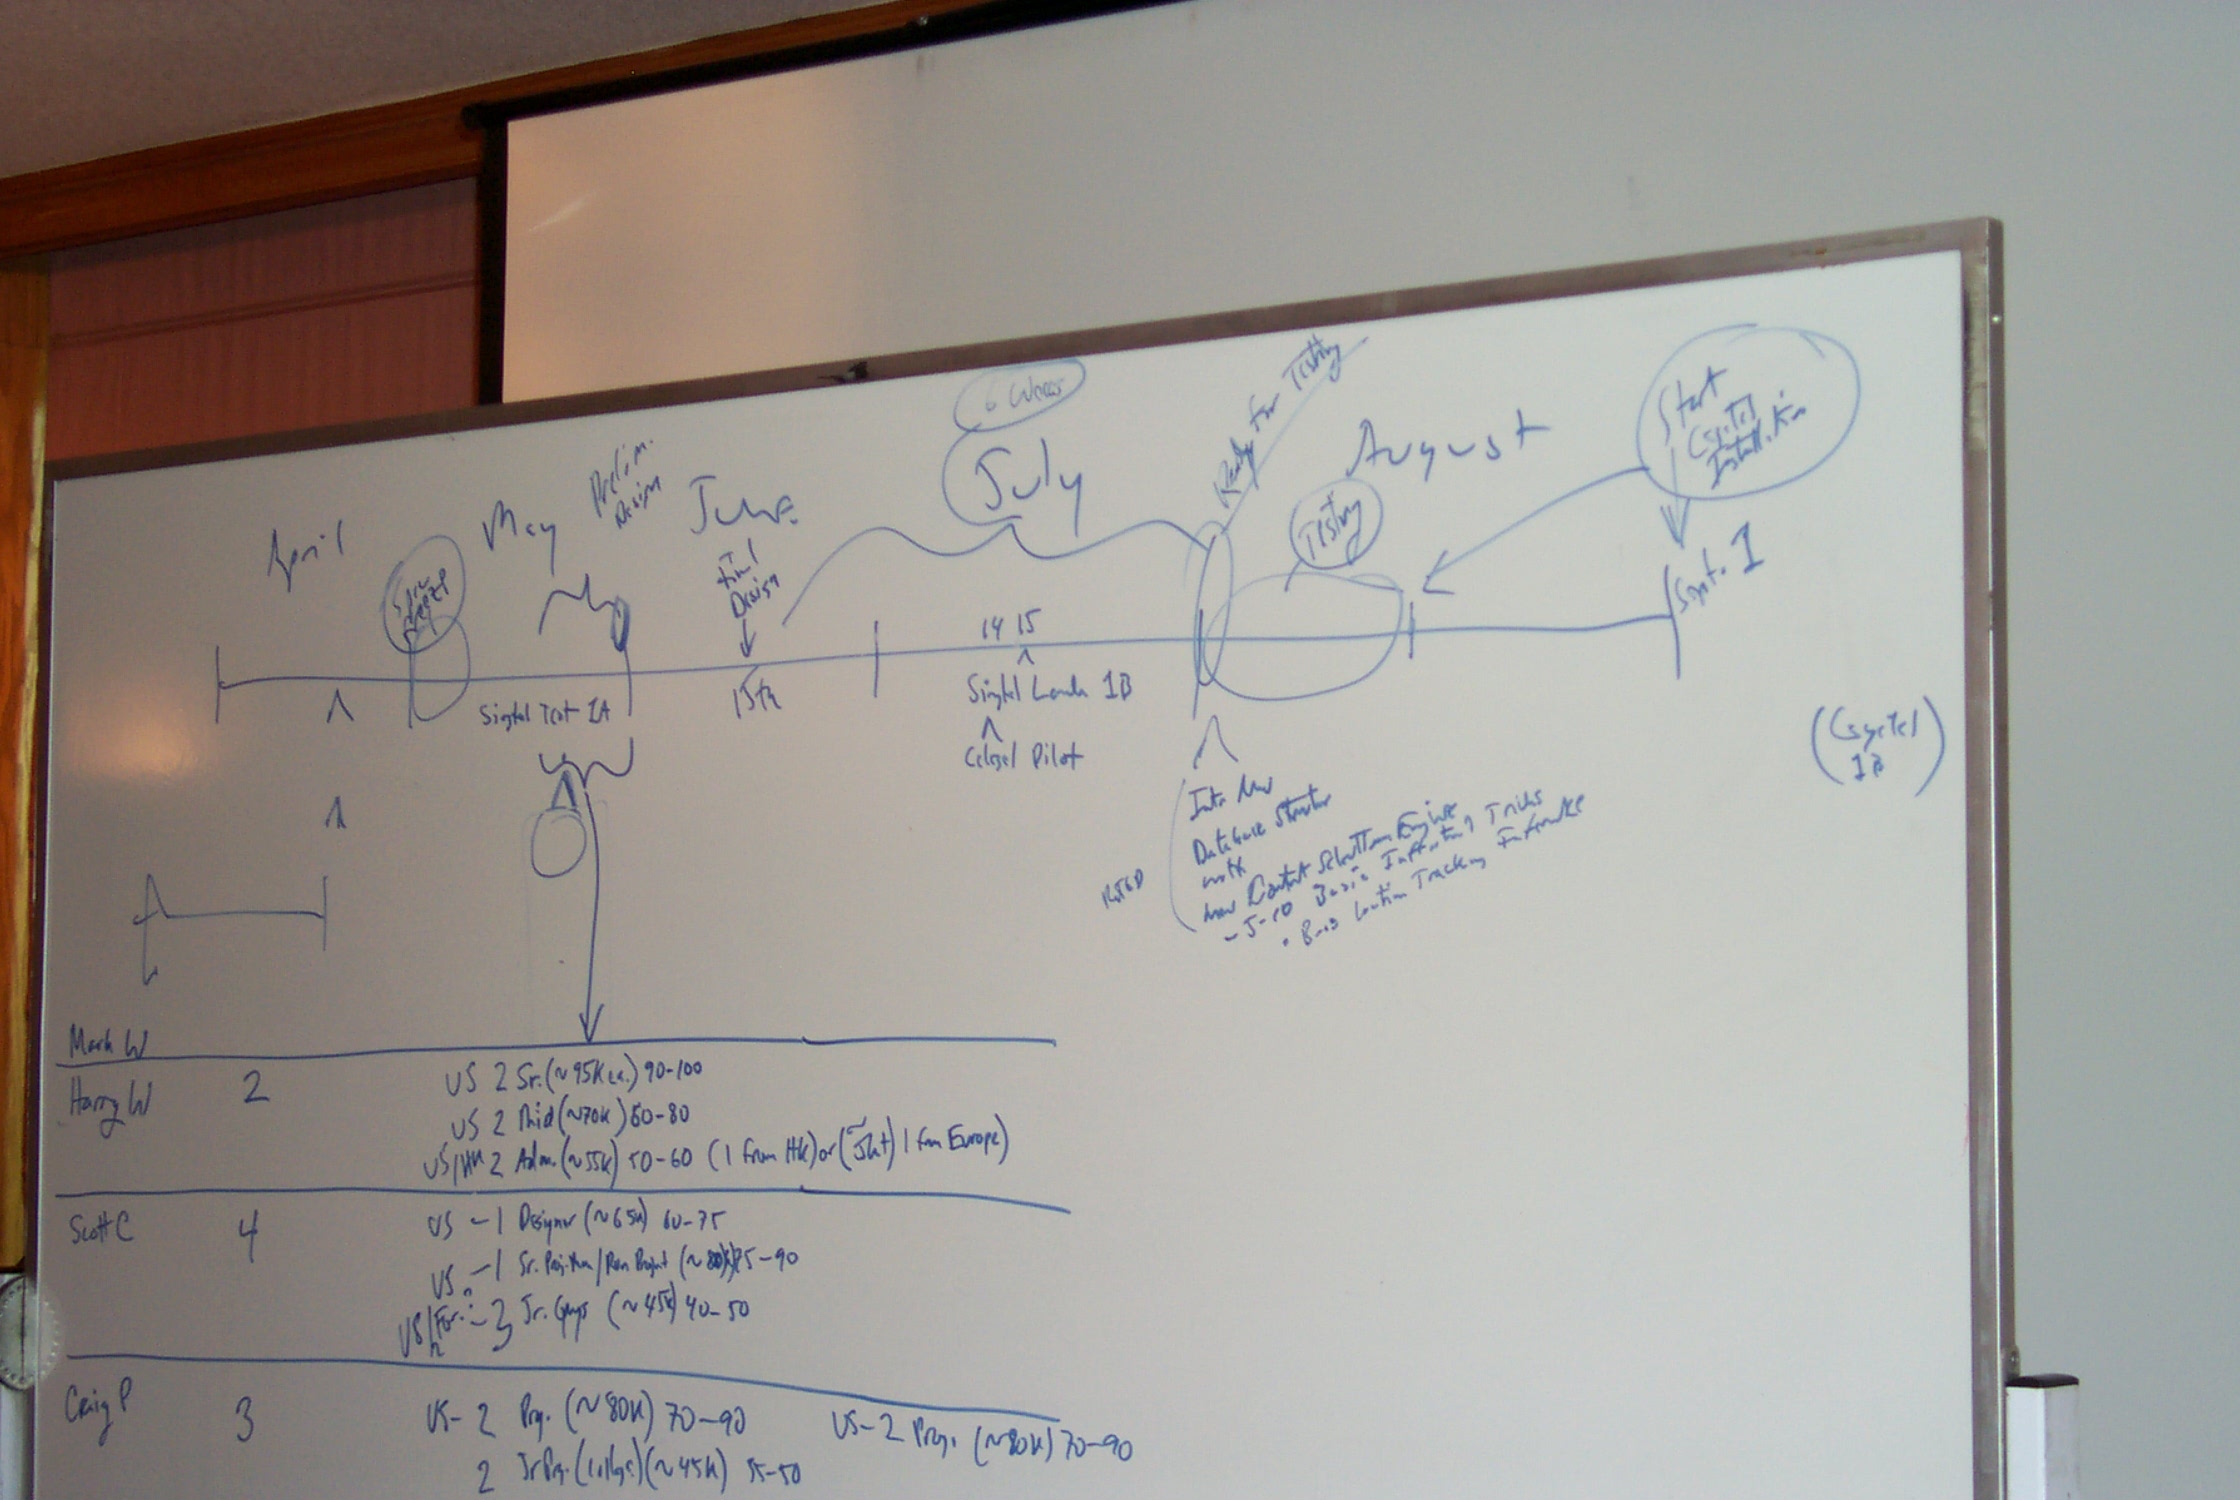 6 Weeks
Ready For Testing
Start
Installation
April
May
Prelim.
Design
June
July
August
Testing
Spec
Freeze
Final
Design
Sept. 1
14 15
Singtel Test 1A
15th
Singtel Launch 1B
Pilot
(
1B)
Intro New
Database Structure
with
new Content Selection Engine
- Basic
- Location Tracking
Mark W
Harry W 2 US 2 Sr. (~95K ea.) 90-100
US 2 Mid (~70K) 60-80
US/HK 2 Adm. (~55K) 50-60 (1 from HK) or 1 from Europe)
Scott C 4 US -1 Designer (~65K) 60-75
US -1 Sr. Proj. Man / (~80K) 75-90
US/For. - 3 Jr. Guys (~45K) 40-50
Craig P 3 US- 2 Prog. (~80K) 70-90 US- 2 Prog. (~80K) 70-90
2 Jr Prog. (college) (~45K) 35-50